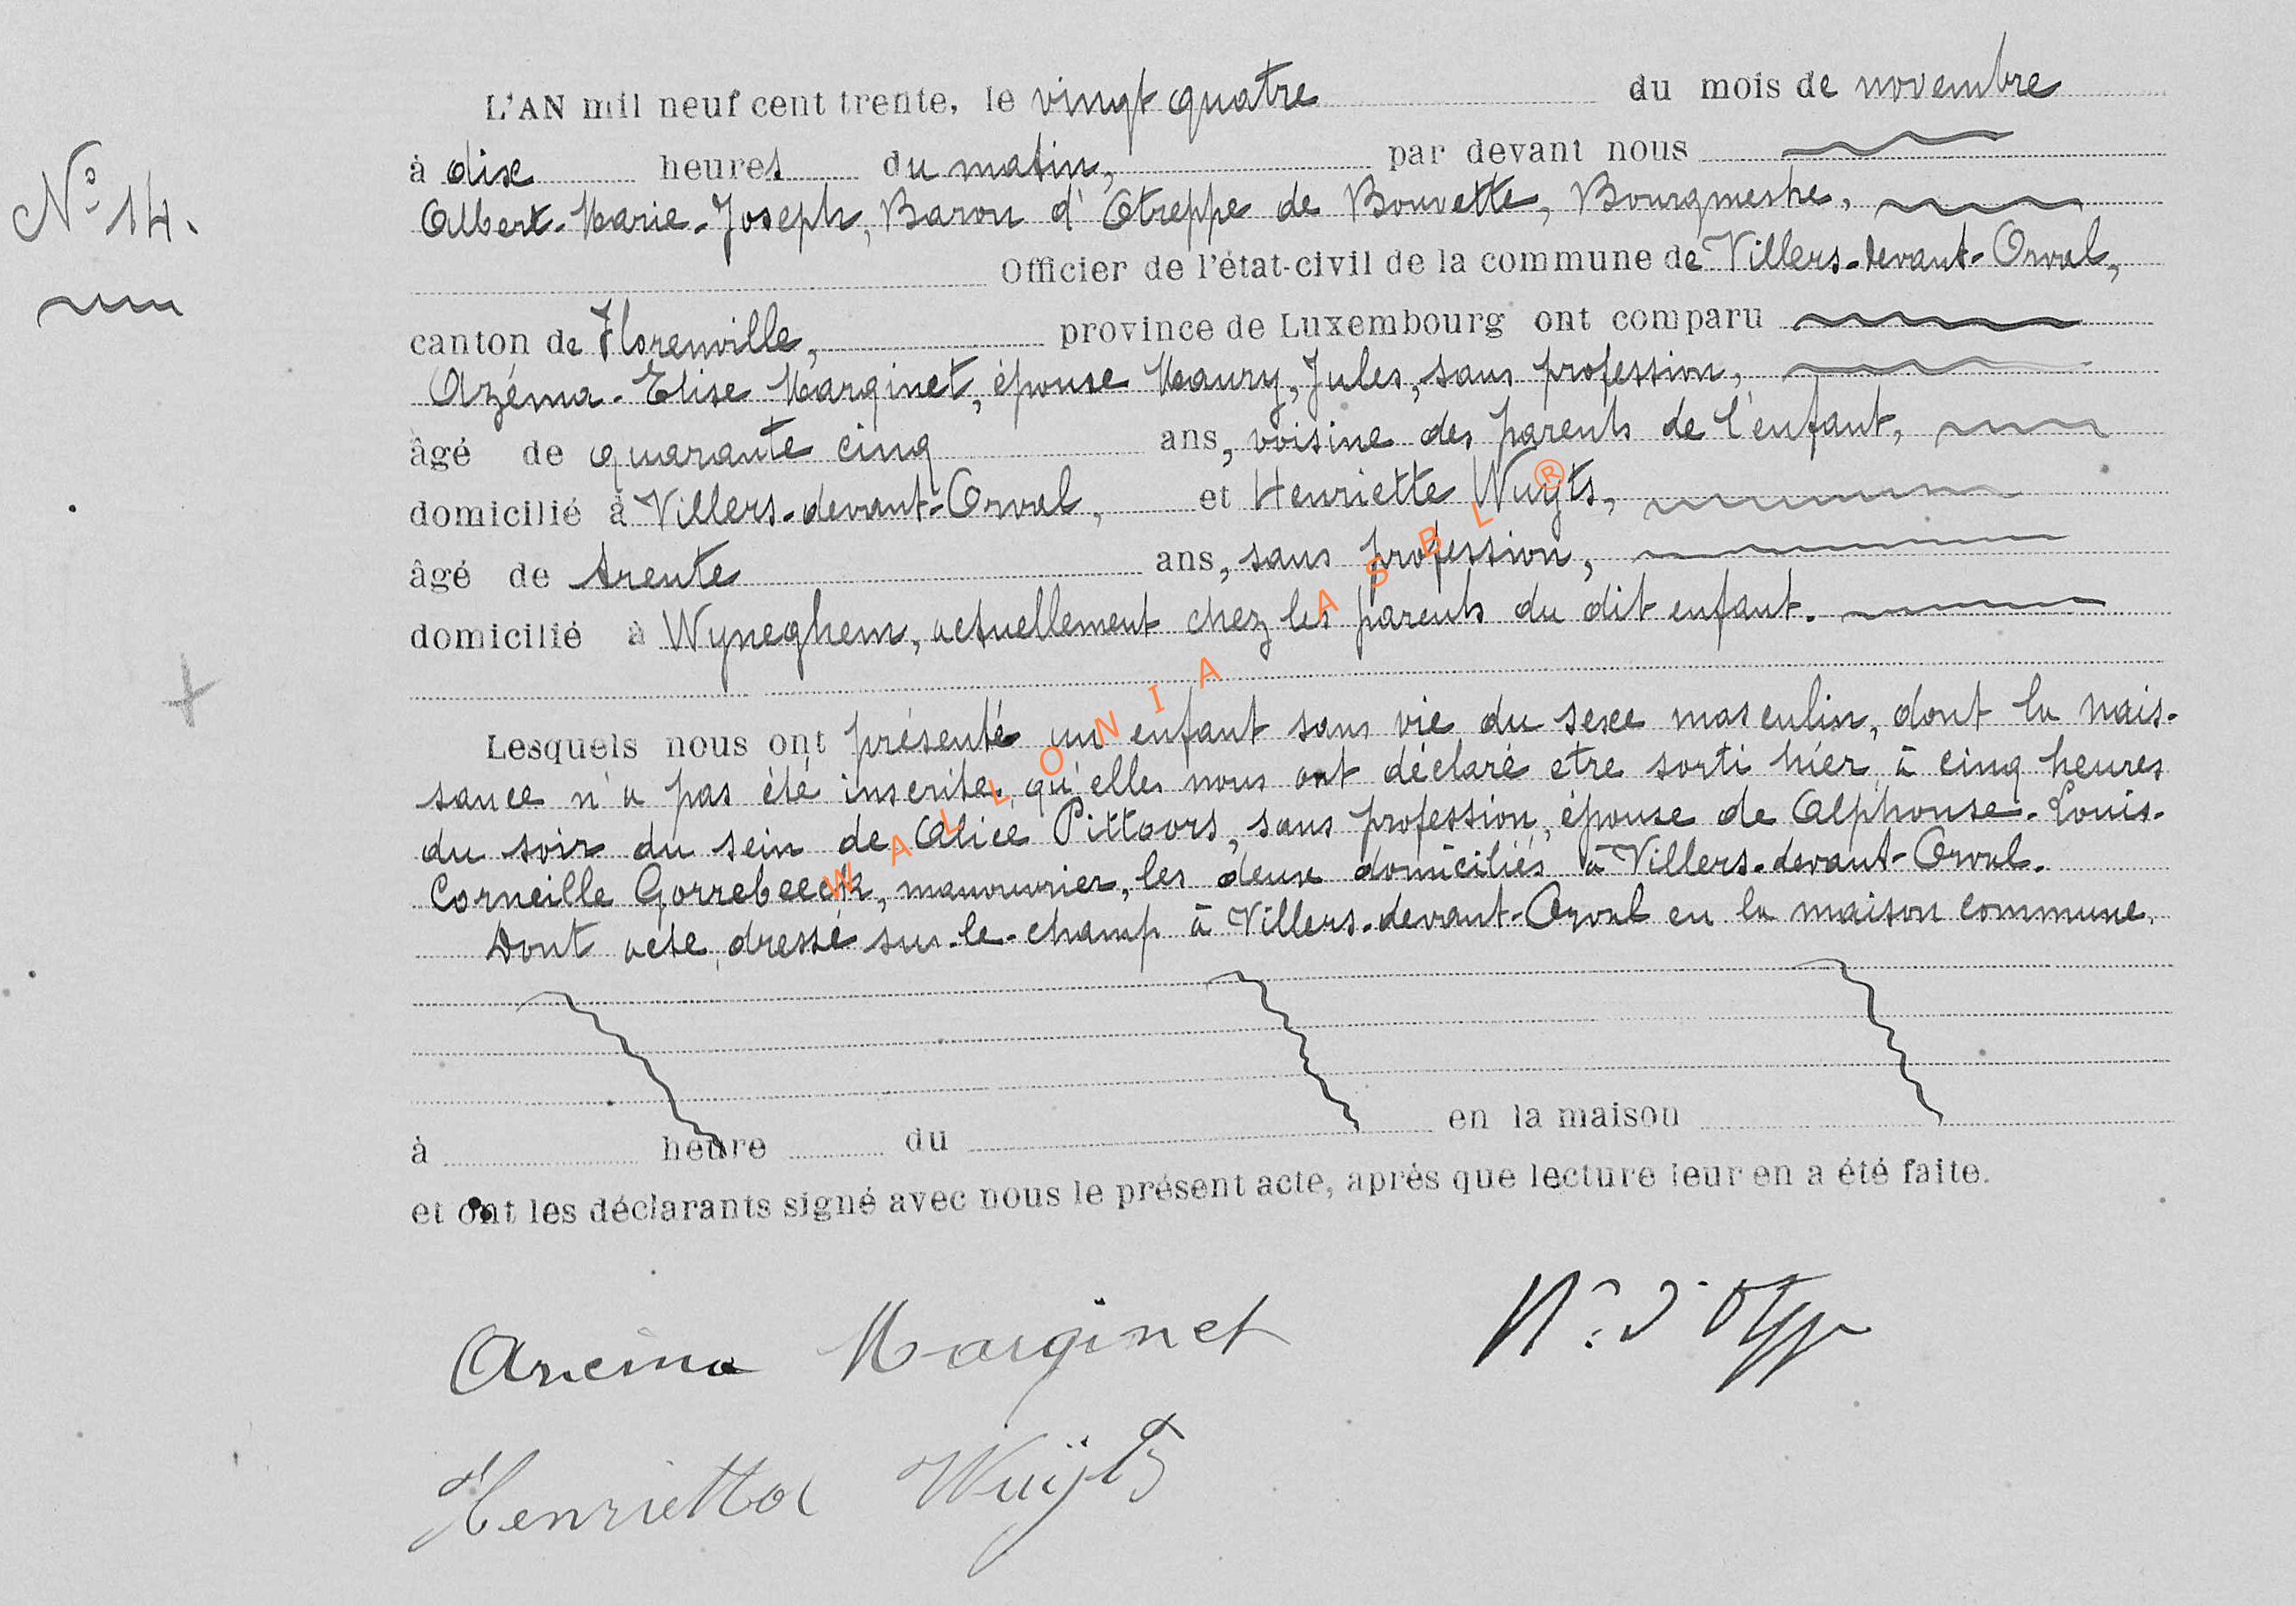 L'AN mil neuf cent trente, le vingt quatre du mois de novembre
N° 14.
à dix heures du matin, par devant nous
Albert-Marie-Joseph, Baron d'Otreppe de Bouvette, Bourgmestre,
Officier de l'état-civil de la commune de Villers-devant-Orval,
canton de Florenville, province de Luxembourg ont comparu
Azéma-Elise Marginet, épouse Maury, Jules, sans profession,
âgé de quarante cinq ans, voisine des parents de l'enfant,
domicilié à Villers-devant-Orval, et Henriette Wuyts,
âgé de trente ans, sans profession,
domicilié à Wyneghem, actuellement chez les parents du dit enfant.
Lesquels nous ont présenté un enfant sans vie du sexe masculin, dont la nais-
sance n'a pas été inscrite, qu'elles nous ont déclaré etre sorti hier, à cinq heures
du soir du sein de Alice Pittoors, sans profession, épouse de Alphonse-Louis-
Corneille Gorrebeeck, manouvrier, les deux domiciliés à Villers-devant-Orval.
Dont acte, dressé sur-le-champ à Villers-devant-Orval en la maison commune.
à heure du en la maison
et ont les déclarants signé avec nous le présent acte, après que lecture leur en a été faite.
Azéma Marginet
Henrietta Wuÿts
WALLONIA ASBL ®